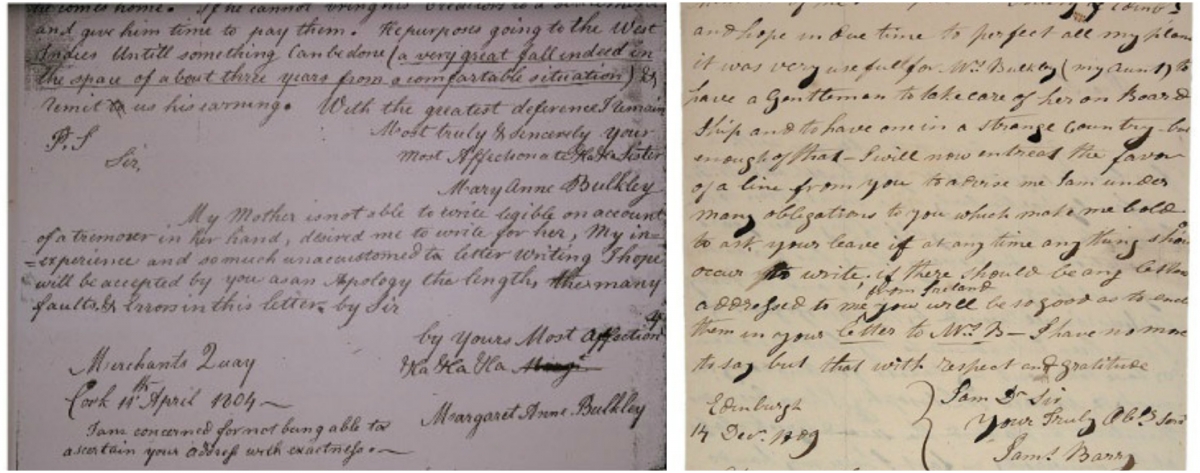 comes home. If he cannot bring his Creditors to a
and give him time to pay them. He purposes going to the West
Indies Untill something Can be done (a very great fall indeed in
the space of about three years from a comfortable situation) &
remit to us his earning. With the greatest deference I remain
Most truly & Sincerely your
most Affectionate &ca &ca Sister
Mary Anne Bulkley
P.S
Sir,
My Mother is not able to write legible on account
of a tremor in her hand, desired me to write for her, My in=
=experience and so much unaccustomed to letter Writing I hope
will be accepted by you as an Apology the length, the many
faults & Errors in this letter by Sir
by yours Most Affection
&ca &ca &ca
Margaret Anne Bulkley
Merchants Quay
Cork 11th April 1804
I am concerned for not being able to
ascertain your address with exactness.
and hope in due time to perfect all my plans
it was very usefull for Mrs Bulkley (my aunt) to
have a Gentleman to take care of her on Board
Ship and to have one in a strange Country - but
enough of that - I will now entreat the favor
of a line from you to advise me I am under
many obligations to you which make me bold
to ask your leave if at any time any thing shou
occur to write, if there should be any letters
addressed to me from Ireland you will be so good as to enc
them in your letter to Mrs B - I have no more
to say but that with respect and gratitude
I am Dr Sir
Your Truly Obt Serv
Jams Barry
Edinburgh
14 Decr. 1809